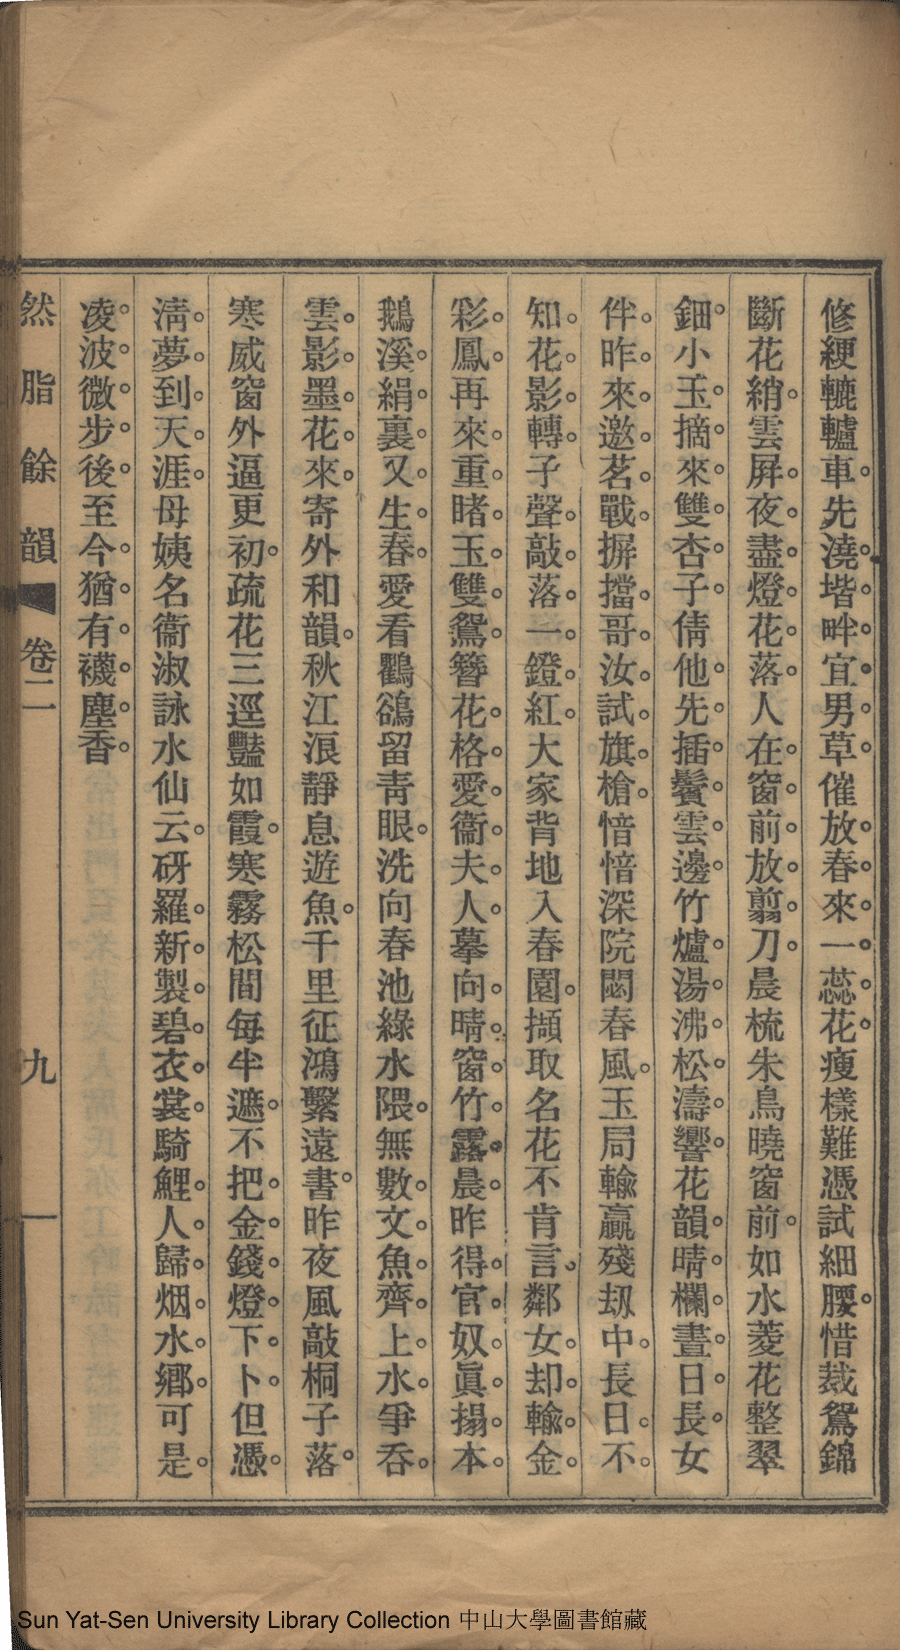 修綆轆轤車先澆堦畔宜男草催放春來一蕊花瘦樣難憑試細腰惜裁鴛錦
斷花綃雲屛夜盡燈花落人在窗前放翦刀晨梳朱鳥曉窗前如水菱花整翠
鈿小玉摘來雙杏子倩他先插鬢雲邊竹爐湯沸松濤響花韻晴欄晝日長女
伴昨來邀茗戰摒擋哥汝試旗槍愔愔深院悶春風玉局輸贏殘刼中長日不
知花影轉子聲敲落一鐙紅大家背地入春園擷取名花不肯言鄰女却輸金
彩鳳再來重睹玉雙鴛簪花格愛衞夫人摹向晴窗竹露晨昨得官奴眞搨本
鵝溪絹裏又生春愛看鸜鵒留靑眼洗向春池綠水隈無數文魚齊上水爭呑
雲影墨花來寄外和韻秋江浪靜息遊魚千里征鴻繫遠書昨夜風敲桐子落
寒威窗外逼更初疏花三逕豔如霞寒霧松間每半遮不把金錢燈下卜但憑
淸夢到天涯母姨名衞淑詠水仙云砑羅新製碧衣裳騎鯉人歸烟水鄉可是
凌波微步後至今猶有襪塵香
然脂餘韻 卷二 九
Sun Yat-Sen University Library Collection 中山大學圖書館藏